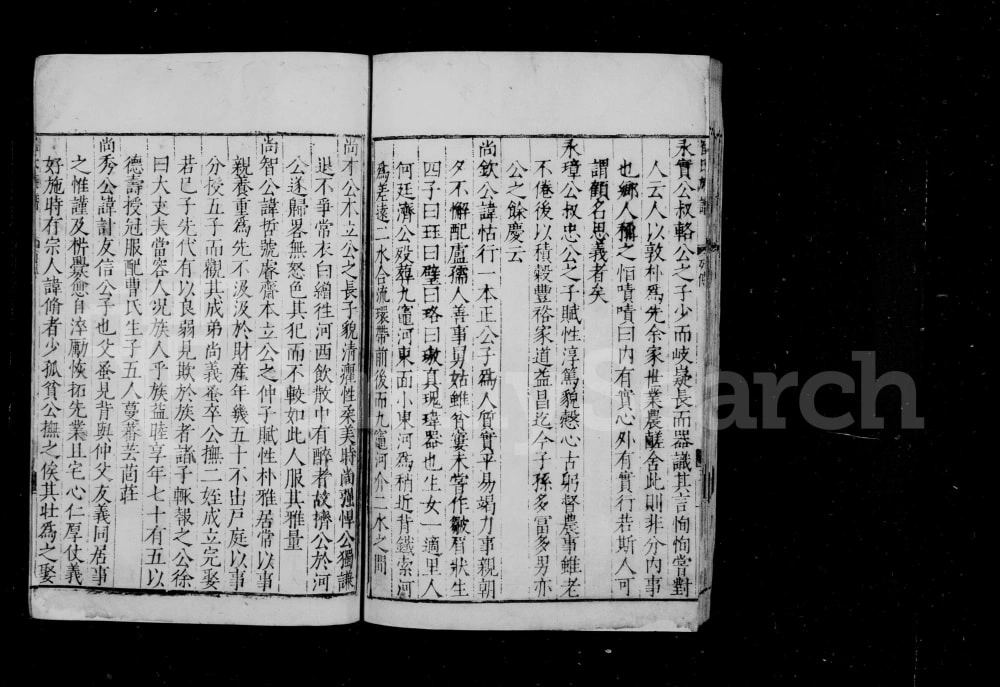 永實公叔輅公之子少而岐嶷長而器識其言恂恂嘗對
人云人以敦朴爲先余家世業農舍此則非分內事
也鄉人稱之恒嘖嘖曰內有實心外有實行若斯人可
謂顧名思義者矣
永璋公叔忠公之子賦性淳篤貌愨心古躬督農事雖老
不倦後以積穀豐裕家道益昌迄今子孫多富多男亦
公之餘慶云
尚欽公諱怙行一本正公子爲人質實平易竭力事親朝
夕不懈配盧孺人善事舅姑雖咎窶未嘗作皺眉狀生
四子曰班曰璧曰略曰璈真瑰瑋器也生女一適里人
何廷濟公歿葬九竈河東面小東河爲稍近背鐵索河
爲差遠二水合流環帶前後而九竈河介二水之間
尚才公本立公之長子貌清癯性柔美時尚强悍公獨謙
退不爭當衣白繒徃河西飲散中有醉者故擠公於河
公遂歸畧無怒色其犯而不較如此人服其雅量
尚智公諱哲號睿齋本立公之仲子賦性朴雅居常以事
親養重爲先不汲汲於財產年幾五十不出戸庭以事
分授五子而觀其成弟尚義蚤卒公撫二姪成立完娶
若已子先代有以良弱見欺於族者諸子輒報之公徐
曰大丈夫當容人况族人乎族益睦享年七十有五以
德壽授冠服配曹氏生子五人蓁蕃芸茼莊
尚秀公諱討友信公子也父蚤見背與仲父友義同居事
之惟謹及枡爨愈自淬勵恢拓先業且宅心仁厚仗義
好施時有宗人諱脩者少孤貧公撫之俟其壯爲之娶